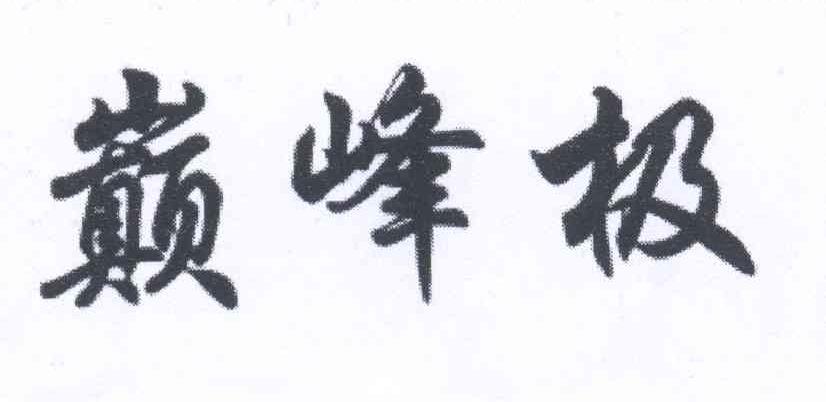 巅峰极